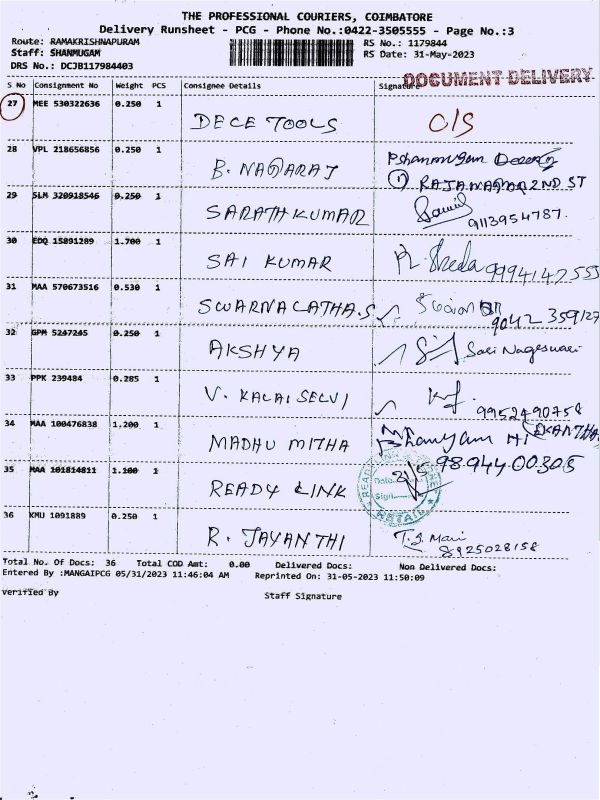 THE PROFESSIONAL COURIERS, COIMBATORE
Delivery Runsheet - PCG - Phone No.:0422-3505555 - Page No.:3
Route: RAMAKRISHNAPURAM RS No.: 1179844
Staff: SHANMUGAM RS Date: 31-May-2023
DRS No.: DCJB117984403
DOCUMENT DELIVERY
S No Consignment No Weight PCS Consignee Details Signature
27 MEE 530322636 0.250 1 DECE TOOLS O/S
28 VPL 218656856 0.250 1 B. NAGARAJ Pshanmugam
① RAJANAGAR 2ND ST
29 SLM 320918546 0.250 1 SARATHKUMAR 9113954787.
30 EDQ 15891289 1.700 1 SAI KUMAR 9994147555
31 MAA 570673516 0.530 1 SWARNALATHA.S 9042359127
32 GPM 5247245 0.250 1 AKSHYA Sari Nageswari
33 PPK 239484 0.285 1 V. KALAISELVI 9952490758
34 MAA 100476838 1.200 1 MADHU MITHA
98.944.00305
35 MAA 101814811 1.100 1 READY LINK 31/5
Date
Sign
RETAIL
36 KMU 1091889 0.250 1 R. JAYANTHI T.S. Mari
8925028158
Total No. Of Docs: 36 Total COD Amt: 0.00 Delivered Docs: Non Delivered Docs:
Entered By :MANGAIPCG 05/31/2023 11:46:04 AM Reprinted On: 31-05-2023 11:50:09
verified By Staff Signature